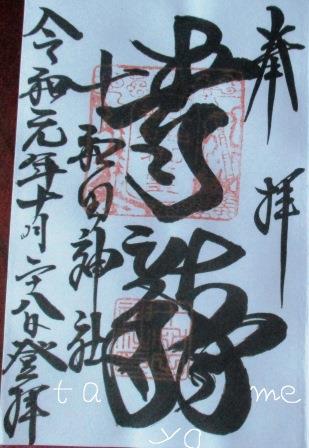 奉拝
青龍
十和田神社
令和元年十月二十八日登拝
ta
ya
me